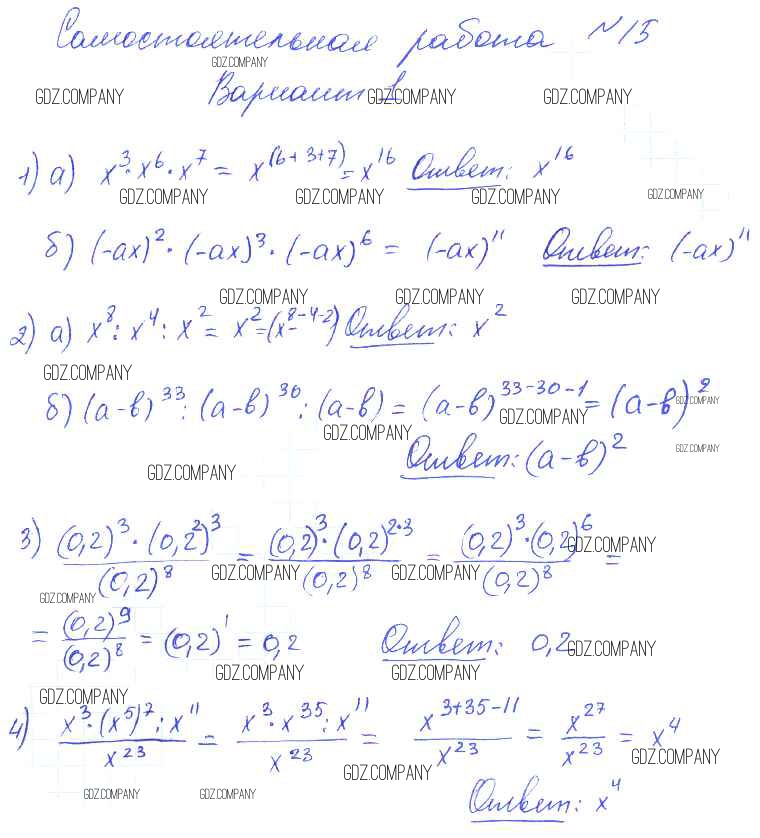 Самостоятельная работа №15
GDZ.COMPANY
GDZ.COMPANY Вариант 1 GDZ.COMPANY GDZ.COMPANY
1) а) x³·x⁶·x⁷ = x⁽⁶⁺³⁺⁷⁾ = x¹⁶ Ответ: x¹⁶
GDZ.COMPANY GDZ.COMPANY GDZ.COMPANY GDZ.COMPANY
б) (-ax)²·(-ax)³·(-ax)⁶ = (-ax)¹¹ Ответ: (-ax)¹¹
GDZ.COMPANY GDZ.COMPANY GDZ.COMPANY
2) а) x⁸ : x⁴ : x² = x² = (x⁸⁻⁴⁻²) Ответ: x²
GDZ.COMPANY
б) (a-b)³³ : (a-b)³⁰ : (a-b) = (a-b)³³⁻³⁰⁻¹ = (a-b)²
GDZ.COMPANY GDZ.COMPANY GDZ.COMPANY
Ответ: (a-b)²
GDZ.COMPANY GDZ.COMPANY
3) (0,2)³·(0,2²)³ / (0,2)⁸ = (0,2)³·(0,2)²·³ / (0,2)⁸ = (0,2)³·(0,2)⁶ / (0,2)⁸ =
GDZ.COMPANY GDZ.COMPANY GDZ.COMPANY
GDZ.COMPANY
= (0,2)⁹ / (0,2)⁸ = (0,2)¹ = 0,2 Ответ: 0,2
GDZ.COMPANY GDZ.COMPANY GDZ.COMPANY
GDZ.COMPANY
4) x³·(x⁵)⁷ : x¹¹ / x²³ = x³·x³⁵ : x¹¹ / x²³ = x³⁺³⁵⁻¹¹ / x²³ = x²⁷ / x²³ = x⁴
GDZ.COMPANY GDZ.COMPANY
GDZ.COMPANY GDZ.COMPANY Ответ: x⁴